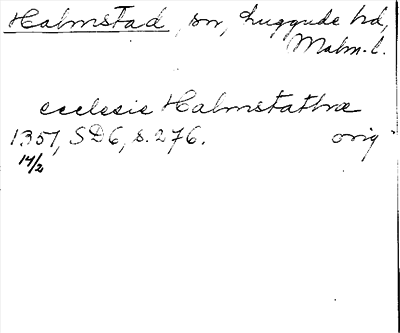 Halmstad, sn, Luggude hd,
Malm.l.
ecclesie Halmstathæ
1357, SD6, s. 276. orig
14/2